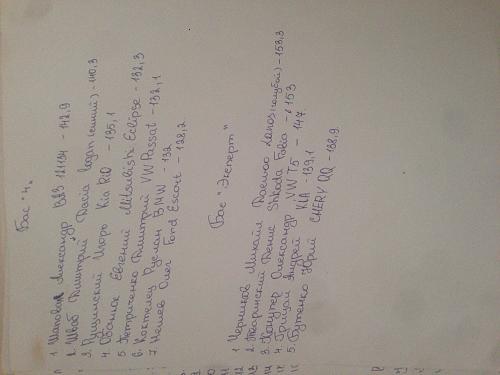 Бас "4"
1 Шаповал Александр ВАЗ 21134 - 142,9
2. Швец Дмитрий Dacia logan (синий) - 140,3
3. Рущинский Игорь Kia Rio - 135,1
4. Обанюк Евгений Mitsubishi Eclipse - 132,3
5 Петриченко Дмитрий VW Passat - 132,1
6. Коктелец Руслан BMW - 132
7 Нешев Олег Ford Escort - 128,2
Бас "Эксперт"
1 Черников Михаил Daewoo Lanos (голубой) - 153,3
2. Тваринский Денис Shkoda Fabia - 153
3. Конупер Александр VW T5 - 147
4. Грицай Андрей KIA - 139,1
5. Бутенко Юрий CHERY QQ - 138,9